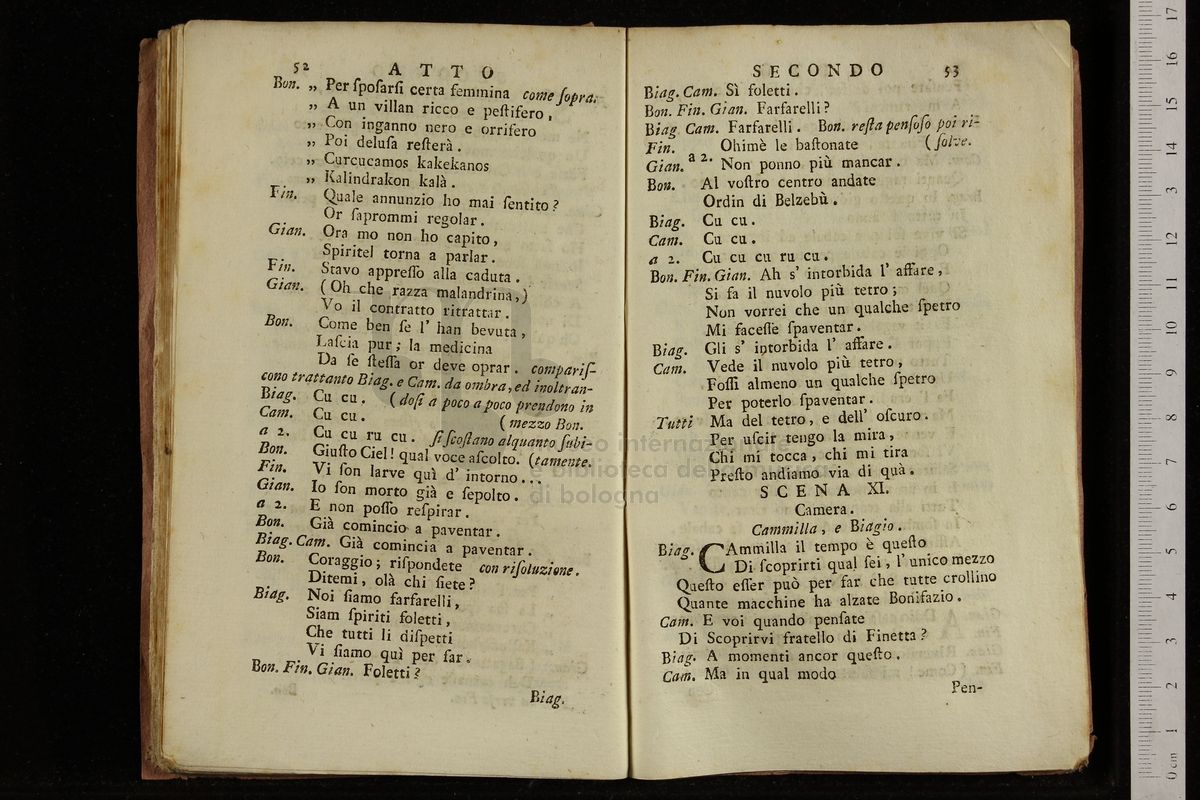 52 ATTO
Bon. „ Per ſpoſarſi certa femmina come ſopra.
„ A un villan ricco e peſtifero,
„ Con inganno nero e orrifero
„ Poi deluſa reſterà.
„ Curcucamos kakekanos
„ Kalindrakon kalà.
Fin. Quale annunzio ho mai ſentito?
Or ſaprommi regolar.
Gian. Ora mo non ho capito,
Spiritel torna a parlar.
Fin. Stavo appreſſo alla caduta.
Gian. (Oh che razza malandrina,)
Vo il contratto ritrattar.
Bon. Come ben ſe l' han bevuta,
Laſcia pur; la medicina
Da ſe ſteſſa or deve oprar. compariſ-
cono trattanto Biag. e Cam. da ombra, ed inoltran-
Biag. Cu cu. (doſi a poco a poco prendono in
Cam. Cu cu. (mezzo Bon.
a 2. Cu cu ru cu. ſi ſcoſtano alquanto ſubi-
Bon. Giuſto Ciel! qual voce aſcolto. (tamente.
Fin. Vi ſon larve quì d' intorno...
Gian. Io ſon morto già e ſepolto.
a 2. E non poſſo reſpirar.
Bon. Già comincio a paventar.
Biag. Cam. Già comincia a paventar.
Bon. Coraggio; riſpondete con riſoluzione.
Ditemi, olà chi ſiete?
Biag. Noi ſiamo farfarelli,
Siam ſpiriti foletti,
Che tutti li diſpetti
Vi ſiamo quì per far.
Bon. Fin. Gian. Foletti?
Biag.
SECONDO 53
Biag. Cam. Sì foletti.
Bon. Fin. Gian. Farfarelli?
Biag Cam. Farfarelli. Bon. reſta penſoſo poi ri-
Fin. Ohimè le baſtonate (ſolve.
Gian. a 2. Non ponno più mancar.
Bon. Al voſtro centro andate
Ordin di Belzebù.
Biag. Cu cu.
Cam. Cu cu.
a 2. Cu cu cu ru cu.
Bon. Fin. Gian. Ah s' intorbida l' affare,
Si fa il nuvolo più tetro;
Non vorrei che un qualche ſpetro
Mi faceſſe ſpaventar.
Biag. Gli s' intorbida l' affare.
Cam. Vede il nuvolo più tetro,
Foſſi almeno un qualche ſpetro
Per poterlo ſpaventar.
Tutti Ma del tetro, e dell' oſcuro.
Per uſcir tengo la mira,
Chi mi tocca, chi mi tira
Preſto andiamo via di quà.
SCENA XI.
Camera.
Cammilla, e Biagio.
Biag. CAmmilla il tempo è queſto
Di ſcoprirti qual ſei, l' unico mezzo
Queſto eſſer può per far che tutte crollino
Quante macchine ha alzate Bonifazio.
Cam. E voi quando penſate
Di Scoprirvi fratello di Finetta?
Biag. A momenti ancor queſto.
Cam. Ma in qual modo
Pen-
museo internazionale
e biblioteca della musica
di bologna
0 cm 1 2 3 4 5 6 7 8 9 10 11 12 13 14 15 16 17